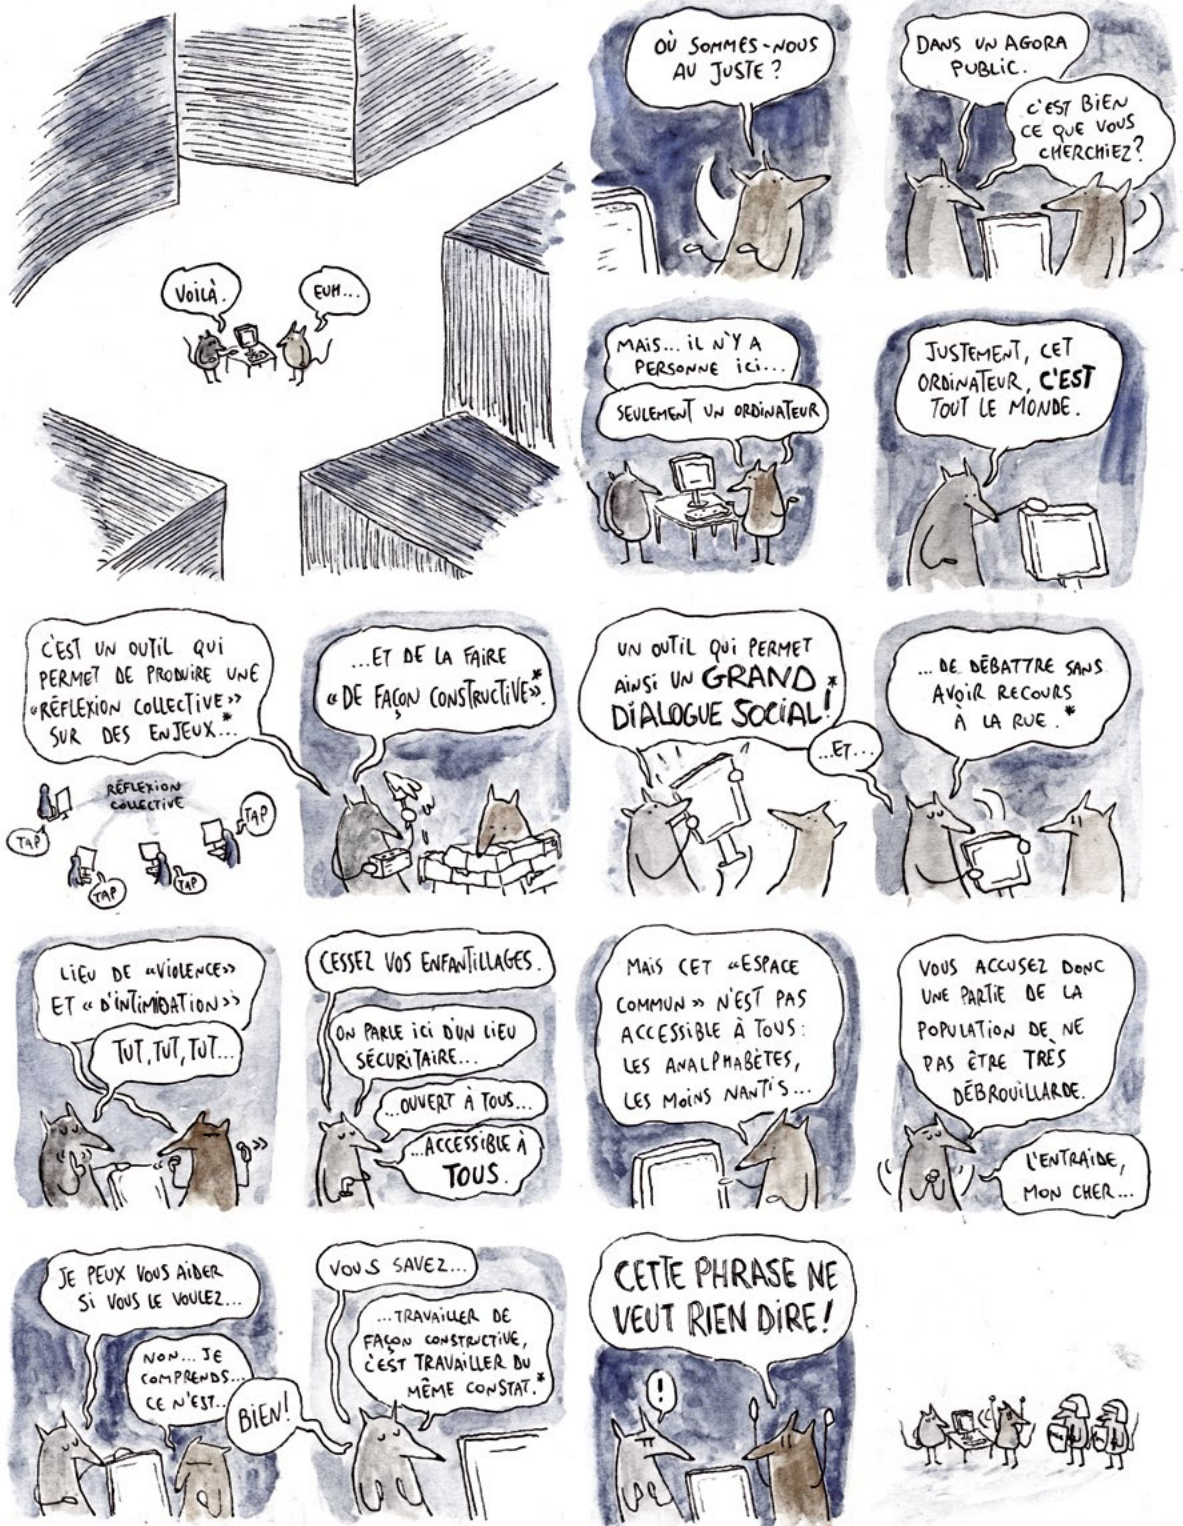 VOILÀ.
EUH...
OÙ SOMMES-NOUS
AU JUSTE ?
DANS UN AGORA
PUBLIC.
C'EST BIEN
CE QUE VOUS
CHERCHIEZ?
MAIS... IL N'Y A
PERSONNE ICI...
SEULEMENT UN ORDINATEUR
JUSTEMENT, CET
ORDINATEUR, C'EST
TOUT LE MONDE.
C'EST UN OUTIL QUI
PERMET DE PRODUIRE UNE
«RÉFLEXION COLLECTIVE»
SUR DES ENJEUX...*
RÉFLEXION
COLLECTIVE
TAP
TAP
TAP
TAP
...ET DE LA FAIRE
«DE FAÇON CONSTRUCTIVE»*.
UN OUTIL QUI PERMET
AINSI UN GRAND
DIALOGUE SOCIAL!*
...ET...
... DE DÉBATTRE SANS
AVOIR RECOURS
À LA RUE.*
LIEU DE «VIOLENCE»
ET «D'INTIMIDATION»
TUT, TUT, TUT...
CESSEZ VOS ENFANTILLAGES.
ON PARLE ICI D'UN LIEU
SÉCURITAIRE...
...OUVERT À TOUS...
...ACCESSIBLE À
TOUS.
MAIS CET «ESPACE
COMMUN» N'EST PAS
ACCESSIBLE À TOUS:
LES ANALPHABÈTES,
LES MOINS NANTIS...
VOUS ACCUSEZ DONC
UNE PARTIE DE LA
POPULATION DE NE
PAS ÊTRE TRÈS
DÉBROUILLARDE.
L'ENTRAIDE,
MON CHER...
JE PEUX VOUS AIDER
SI VOUS LE VOULEZ...
NON... JE
COMPRENDS...
CE N'EST..
BIEN!
VOUS SAVEZ...
...TRAVAILLER DE
FAÇON CONSTRUCTIVE,
C'EST TRAVAILLER DU
MÊME CONSTAT.*
CETTE PHRASE NE
VEUT RIEN DIRE!
!